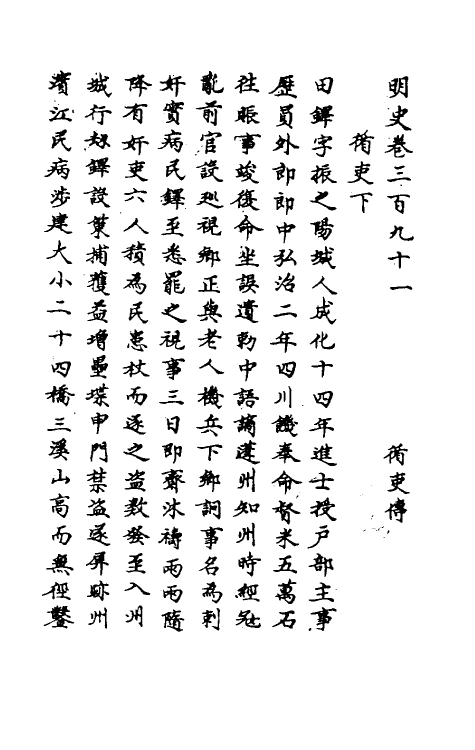 明史卷三百九十一 循吏傳
循吏下
田鐸字振之陽城人成化十四年進士授戶部主事
歷員外郎郎中弘治二年四川饑奉命督米五萬石
往賑事竣復命坐誤遺勅中語謫蓬州知州時經寇
亂前官設巡視鄉正與老人機兵下鄉詗事名為刺
奸實病民鐸至悉罷之視事三日即齋沐禱雨雨隨
降有奸吏六人積為民患杖而逐之盜數發至入州
城行刼鐸設策捕獲益增壘堞申門禁盜遂屏跡州
濱江民病涉建大小二十四橋三溪山高而無徑鑿